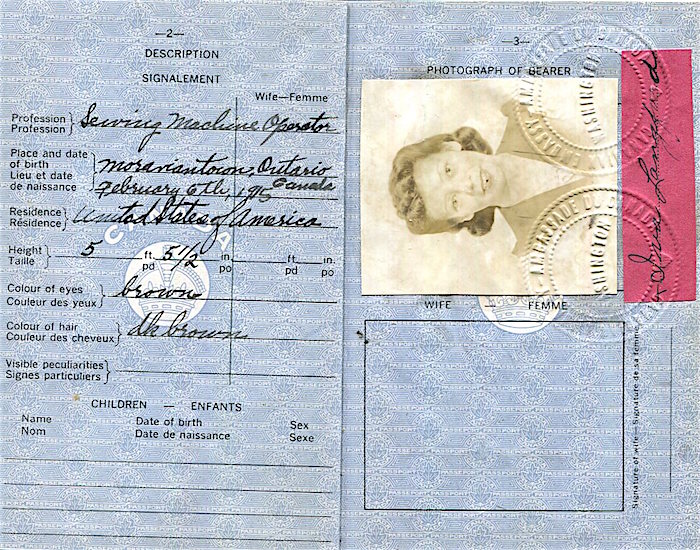 —2—
DESCRIPTION
SIGNALEMENT
Wife—Femme
Profession
Profession } Sewing Machine Operator
Place and date
of birth
Lieu et date
de naissance } Moraviantown, Ontario
Canada
February 6th, 19
Residence
Résidence } United States of America
Height
Taille } 5 ft. pd 5 1/2 in po ft. pd in po
Colour of eyes
Couleur des yeux } brown
Colour of hair
Couleur des cheveux } dk brown
Visible peculiarities
Signes particuliers }
CHILDREN — ENFANTS
Name Date of birth Sex
Nom Date de naissance Sexe
CANADA
—3—
PHOTOGRAPH OF BEARER
WIFE FEMME
Signature of wife—Signature de sa femme
AMBASSADE DU CANADA
WASHINGTON